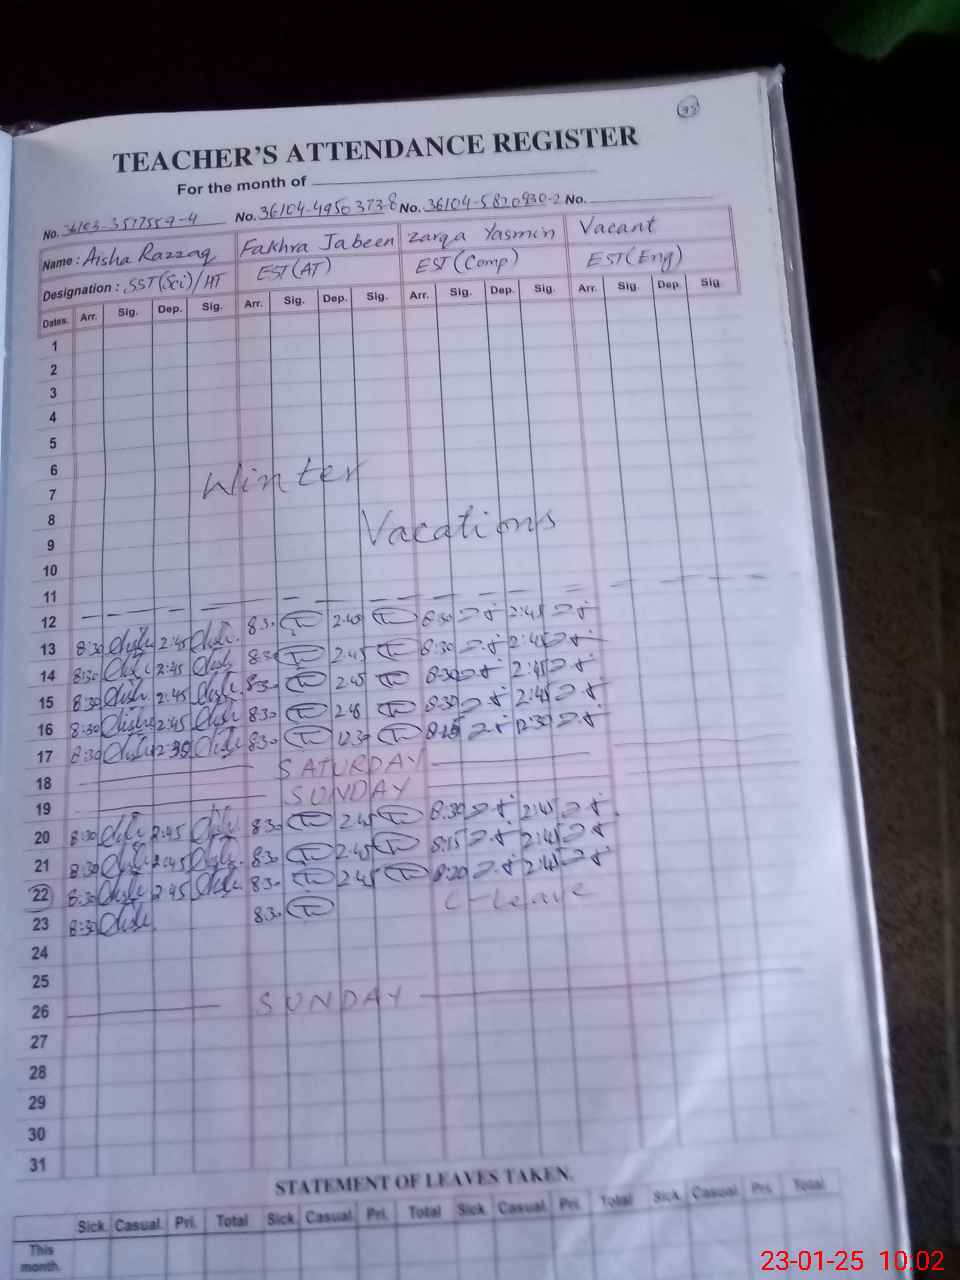 95
TEACHER'S ATTENDANCE REGISTER
For the month of
No. 36103-3517559-4 No. 36104-4950373-8 No. 36104-5820930-2 No.
Name: Aisha Razzaq Fakhra Jabeen Zarqa Yasmin Vacant
Designation: SST(Sci)/HT EST(AT) EST(Comp) EST(Eng)
Dates. Arr. Sig. Dep. Sig. Arr. Sig. Dep. Sig. Arr. Sig. Dep. Sig. Arr. Sig. Dep. Sig.
1
2
3
4
5
6
Winter
7
8
Vacations
9
10
11
12
13 8:30 2:45 8:30 2:45 8:30 2:45
14 8:30 2:45 8:30 2:45 8:30 2:45
15 8:30 2:45 8:30 2:45 8:30 2:45
16 8:30 2:45 8:30 2:45 8:30 2:45
17 8:30 12:30 8:30 12:30 8:15 12:30
18 SATURDAY
19 SUNDAY
20 8:30 2:45 8:30 2:45 8:30 2:45
21 8:30 2:45 8:30 2:45 8:15 2:45
22 8:30 2:45 8:30 2:45 8:20 2:45
23 8:30 8:30 C-Leave
24
25
26 SUNDAY
27
28
29
30
31
STATEMENT OF LEAVES TAKEN.
Sick. Casual. Pri. Total Sick. Casual. Pri. Total Sick. Casual. Pri. Total Sick. Casual. Pri. Total
This month.
23-01-25 10:02